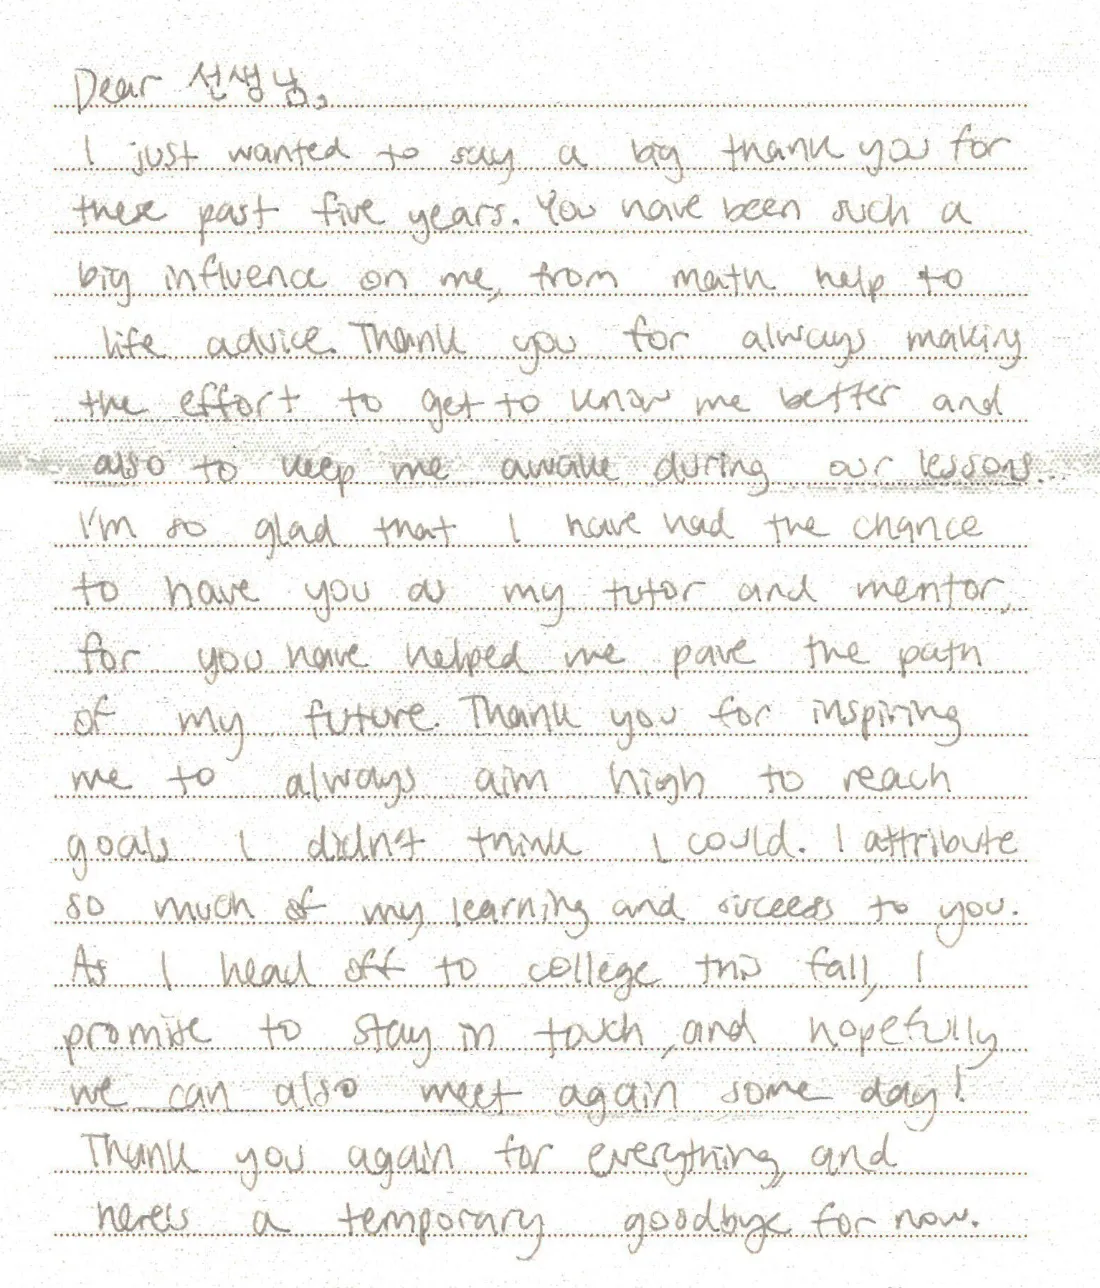 Dear 선생님,
I just wanted to say a big thank you for
these past five years. You have been such a
big influence on me, from math help to
life advice. Thank you for always making
the effort to get to know me better and
also to keep me awake during our lessons...
I'm so glad that I have had the chance
to have you as my tutor and mentor,
for you have helped me pave the path
of my future. Thank you for inspiring
me to always aim high to reach
goals I didn't think I could. I attribute
so much of my learning and success to you.
As I head off to college this fall, I
promise to stay in touch, and hopefully
we can also meet again some day!
Thank you again for everything, and
here's a temporary goodbye for now.